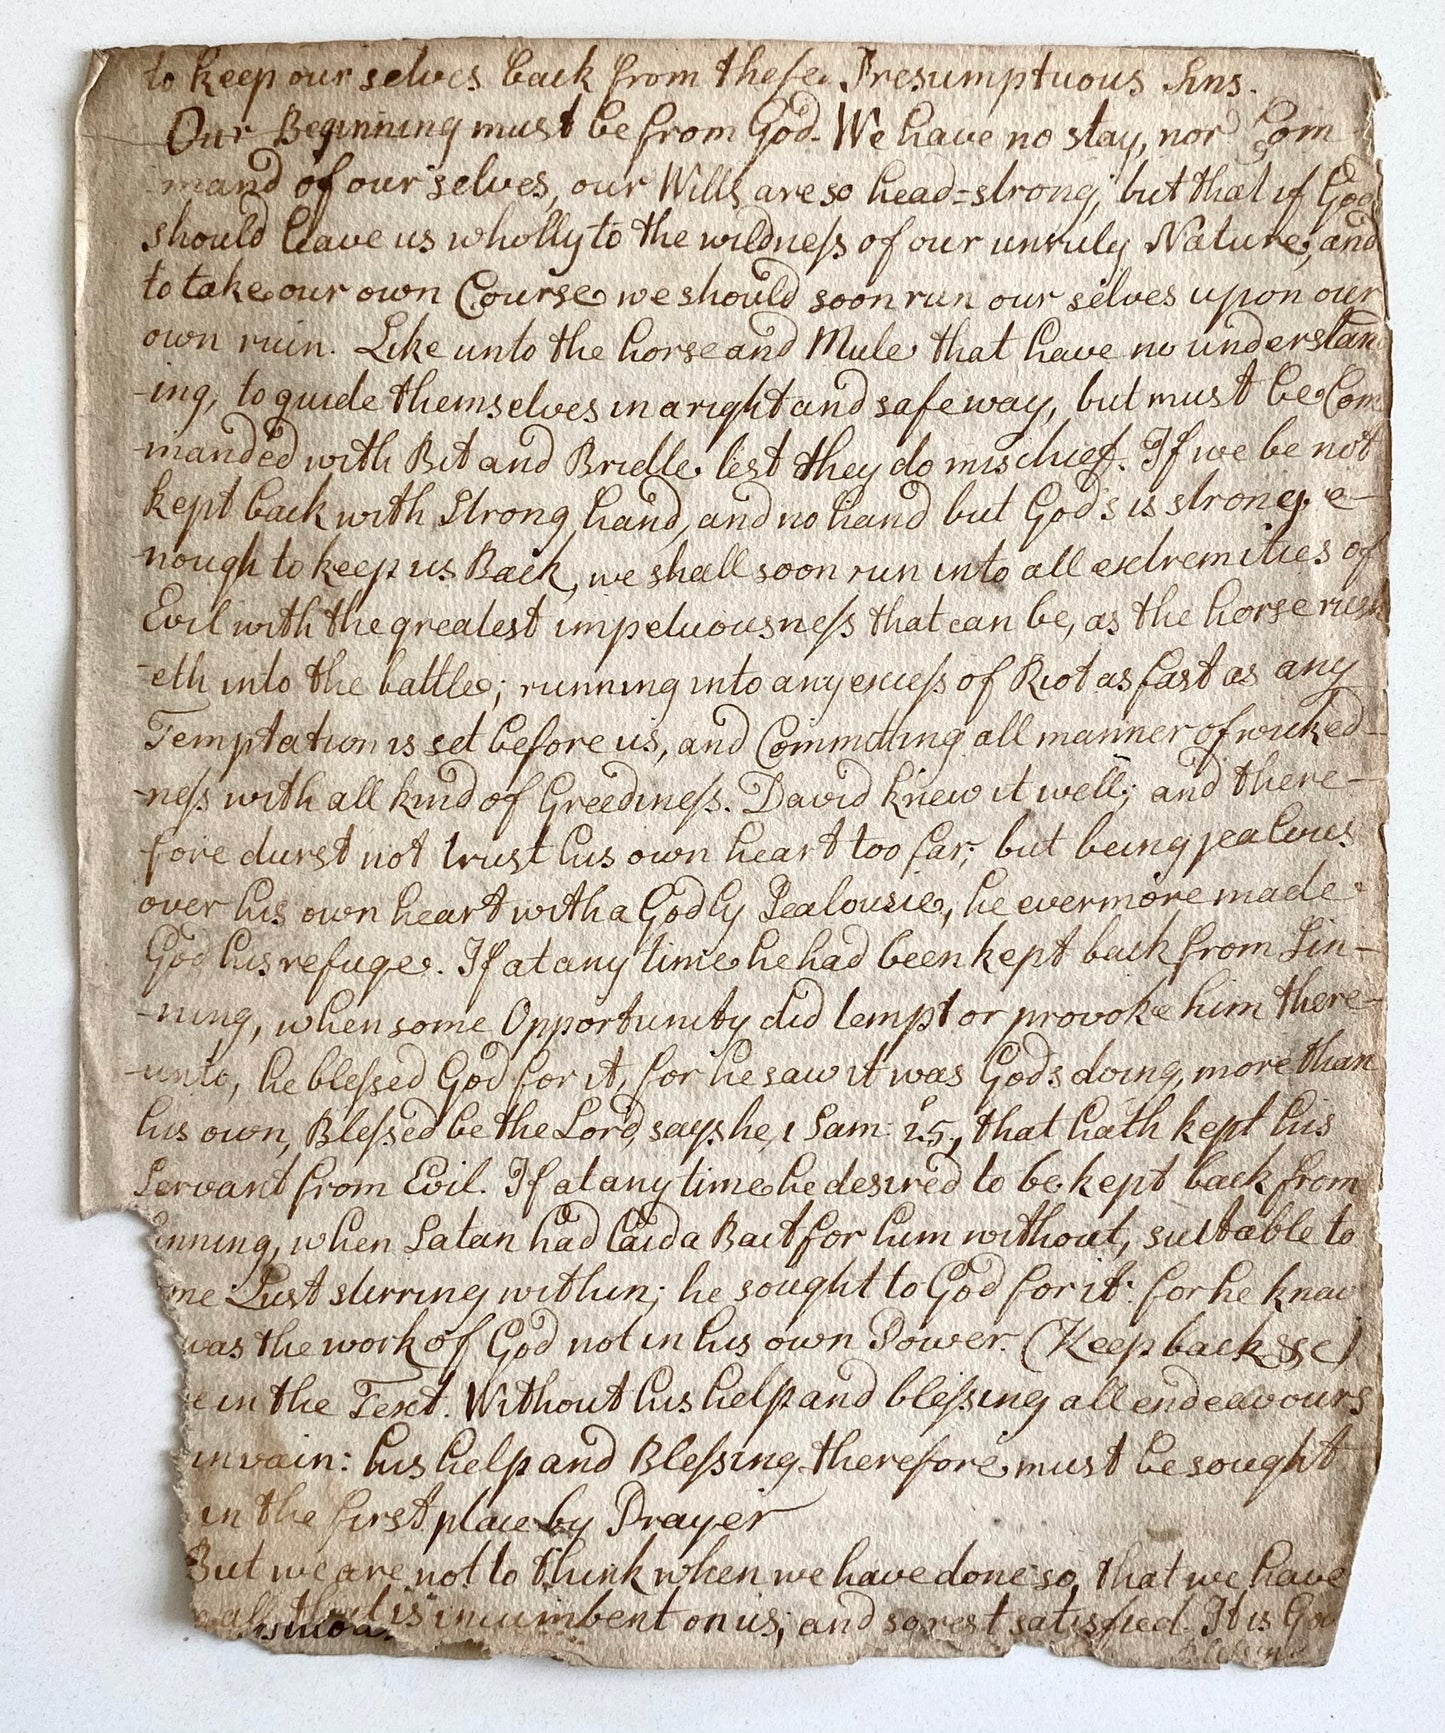 to keep our selves back from these Presumptuous Sins.
Our Beginning must be from God. We have no stay, nor Com
-mand of our selves, our Wills are so head=strong, but that if God
should leave us wholly to the wildneſs of our unruly Nature, and
to take our own Course we should soon run our selves upon our
own ruin. Like unto the horse and Mule that have no understan
-ing, to guide themselves in a right and safe way, but must be Com
-manded with Bit and Bridle lest they do mischief. If we be not
kept back with Strong hand, and no hand but God's is strong e-
-nough to keep us Back, we shall soon run into all extremities of
Evil with the greatest impetuousneſs that can be, as the horse rush
-eth into the battle; running into any exceſs of Riot as fast as any
Temptation is set before us, and Committing all manner of wicked-
-neſs with all kind of Greedineſs. David knew it well; and there-
-fore durst not trust his own heart too far; but being jealous
over his own heart with a Godly Jealousie, he evermore made
God his refuge. If at any time he had been kept back from Sin-
-ning, when some Opportunity did tempt or provoke him there-
-unto, he bleſsed God for it, for he saw it was Gods doing, more than
his own, Bleſsed be the Lord, says he, 1 Sam: 25, that hath kept his
Servant from Evil. If at any time he desired to be kept back from
inning, when Satan had laid a Bait for him without, suitable to
me Lust stirring within; he sought to God for it: for he knew
was the work of God not in his own Power. (Keep back &c)
in the Text. Without his help and bleſsing all endeavours
in vain: his help and Bleſsing therefore must be sought
in the first place by Prayer
But we are not to think when we have done so, that we have
all that is incumbent on us, and so rest satisfied. It is God